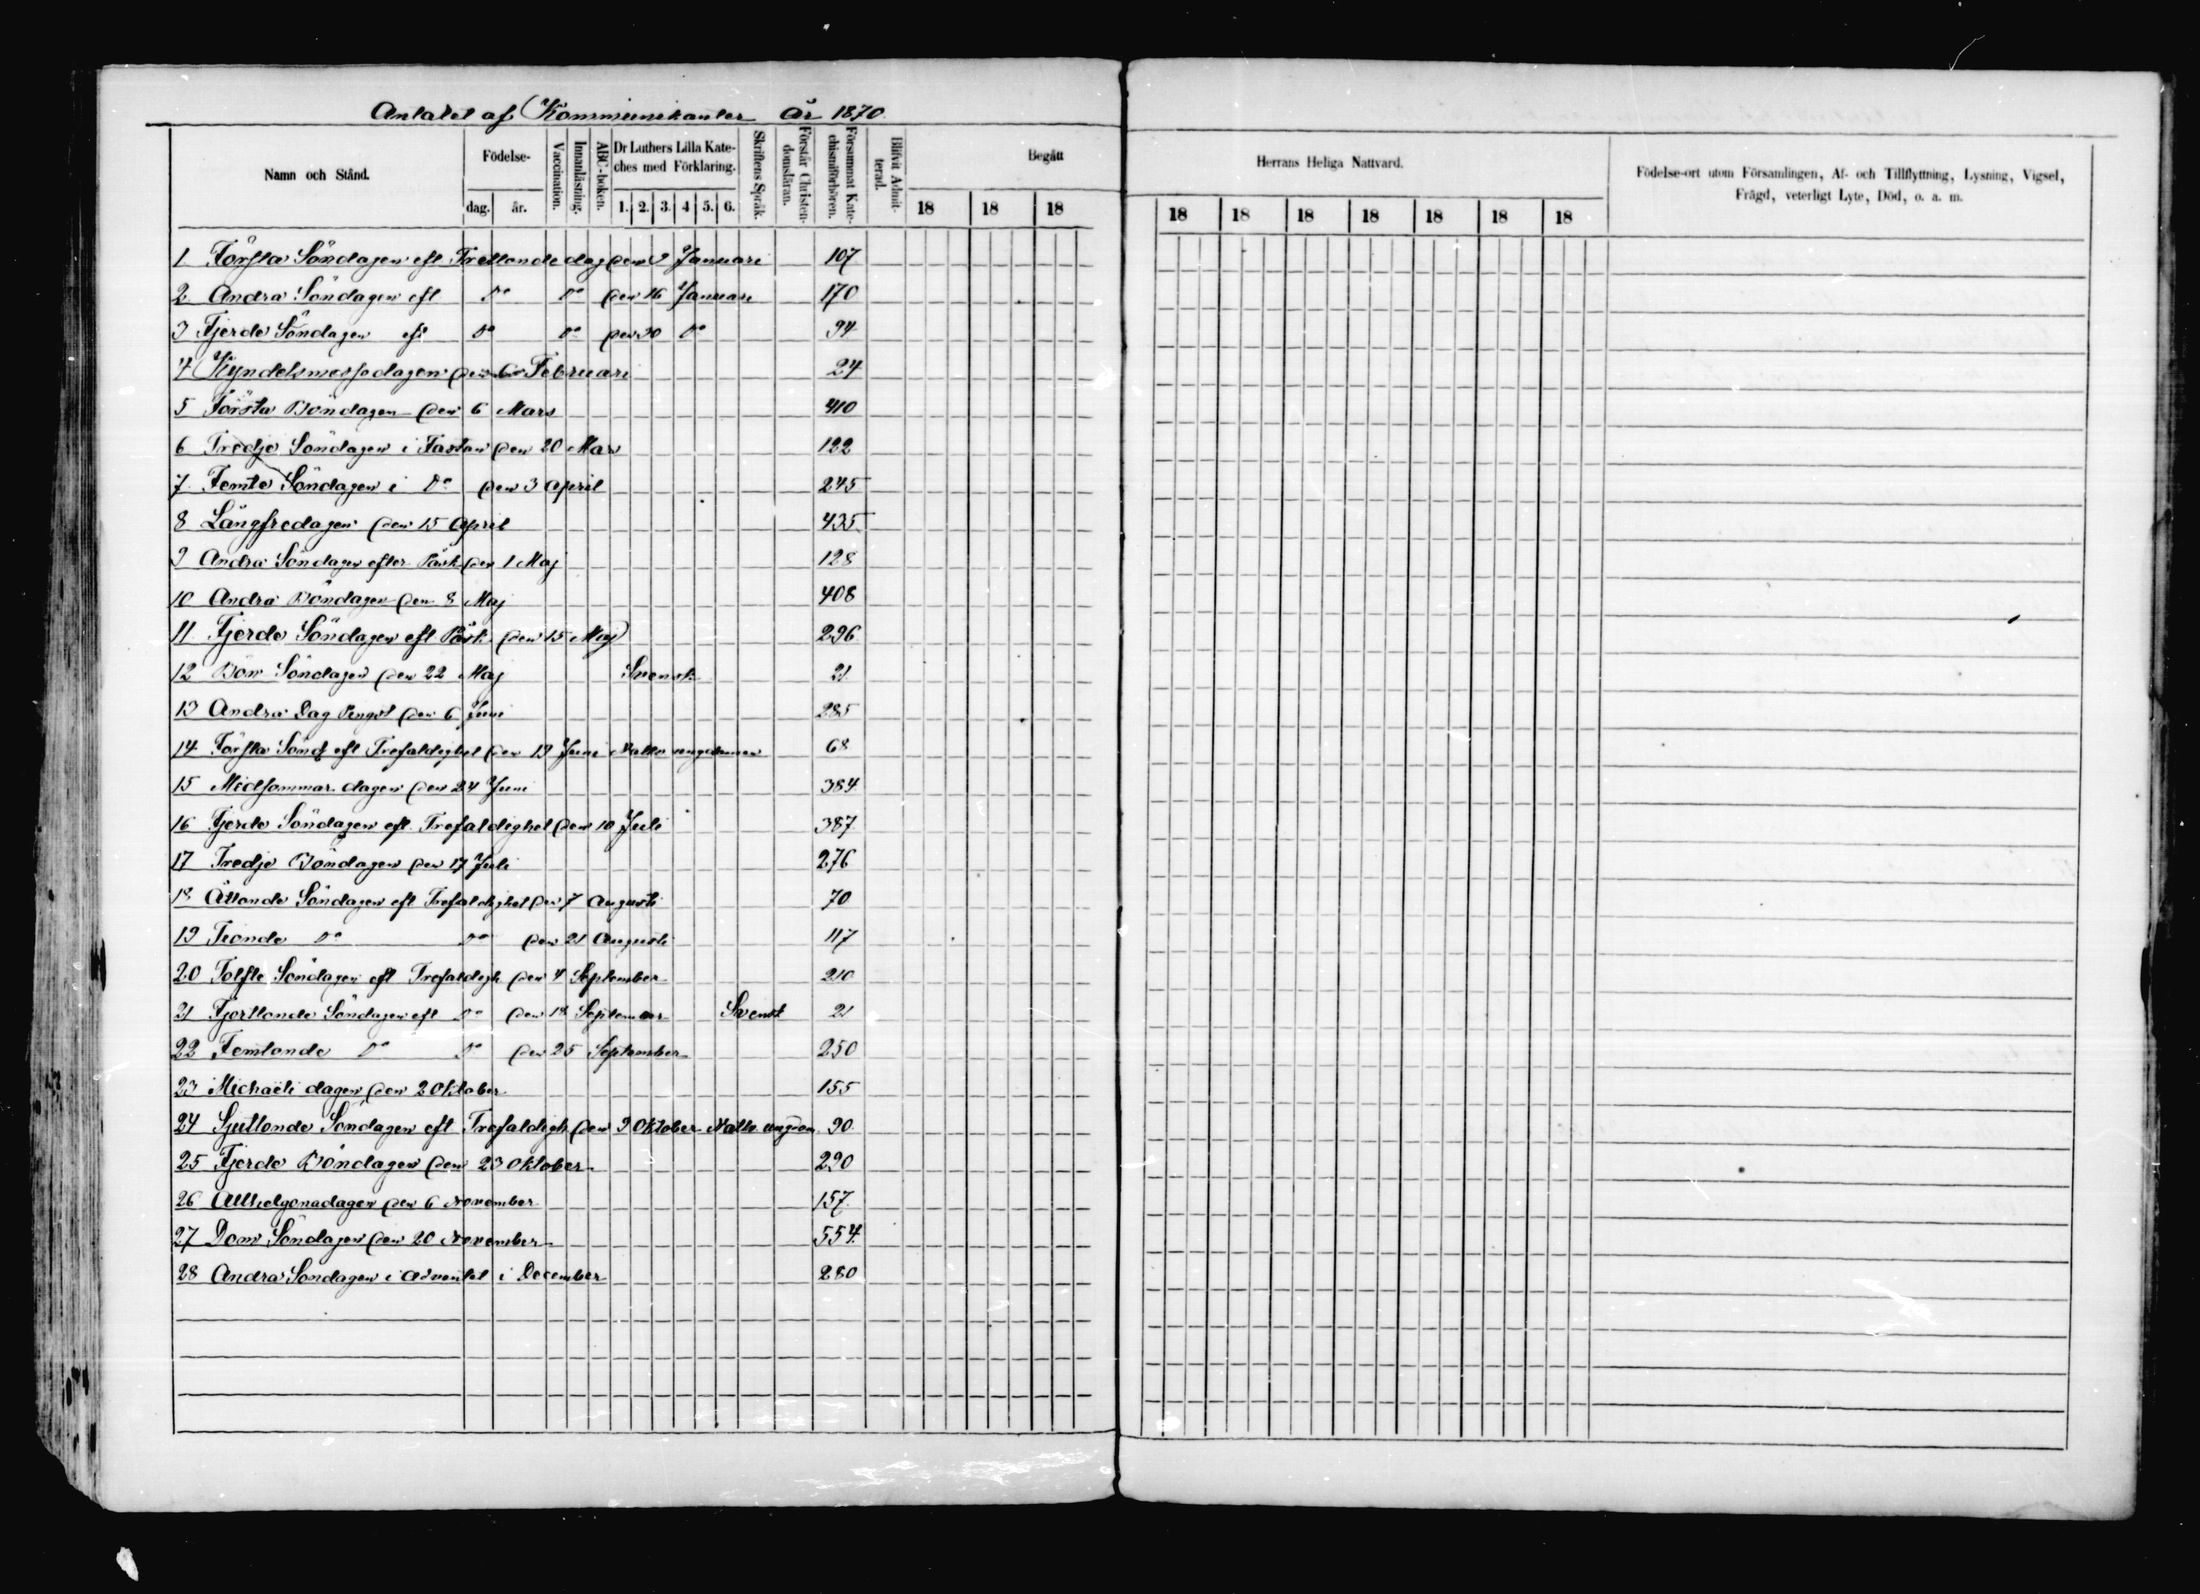 Antalet af Kommunikanter år 1870
Namn och Stånd.
Födelse-
dag.
år.
Vaccination.
Innanläsning.
ABC-boken.
Dr Luthers Lilla Kate-
ches med Förklaring.
1. 2. 3. 4 5. 6.
Skriftens Språk.
Förstår Christen-
domsläran.
Försummat Kate-
chismiförhören.
Blifvit Admit-
terad.
Begått
18 18 18
Herrans Heliga Nattvard.
18 18 18 18 18 18 18
Födelse-ort utom Församlingen, Af- och Tillflyttning, Lysning, Vigsel,
Frägd, veterligt Lyte, Död, o. a. m.
1 Första Söndagen eft Trettondedag den 9 Januari 107
2 Andra Söndagen eft Do Do den 16 Januari 170
3 Fjerde Söndagen eft Do Do den 30 Do 94
4 Kyndelsmessodagen den 6 Februari 24
5 Första Böndagen den 6 Mars 410
6 Tredje Söndagen i Fastan den 20 Mars 122
7 Femte Söndagen i Do den 3 April 245
8 Långfredagen den 15 April 435
9 Andra Söndagen efter Påsk den 1 Maj 128
10 Andra Böndagen den 8 Maj 408
11 Fjerde Söndagen eft Påsk den 15 Maj 296
12 Bön Söndagen den 22 Maj Svensk 21
13 Andra Dag Pingst den 6 Juni 285
14 Första Sönd eft Trefaldighet den 19 Juni Nattv ungdomen 68
15 Midsommar dagen den 24 Juni 384
16 Fjerde Söndagen eft Trefaldighet den 10 Juli 387
17 Tredje Böndagen den 17 Juli 276
18 Åttonde Söndagen eft Trefaldighet den 7 Augusti 70
19 Tionde Do Do den 21 Augusti 117
20 Tolfte Söndagen eft Trefaldigh den 4 September 210
21 Fjortonde Söndagen eft Do den 18 September Svensk 21
22 Femtonde Do Do den 25 September 250
23 Michaeli dagen den 2 Oktober 155
24 Sjuttonde Söndagen eft Trefaldigh den 9 Oktober Nattv ungdom 90
25 Fjerde Böndagen den 23 Oktober 290
26 Allhelgonadagen den 6 November 157
27 Dom Söndagen den 20 November 554
28 Andra Söndagen i Adventet i December 280